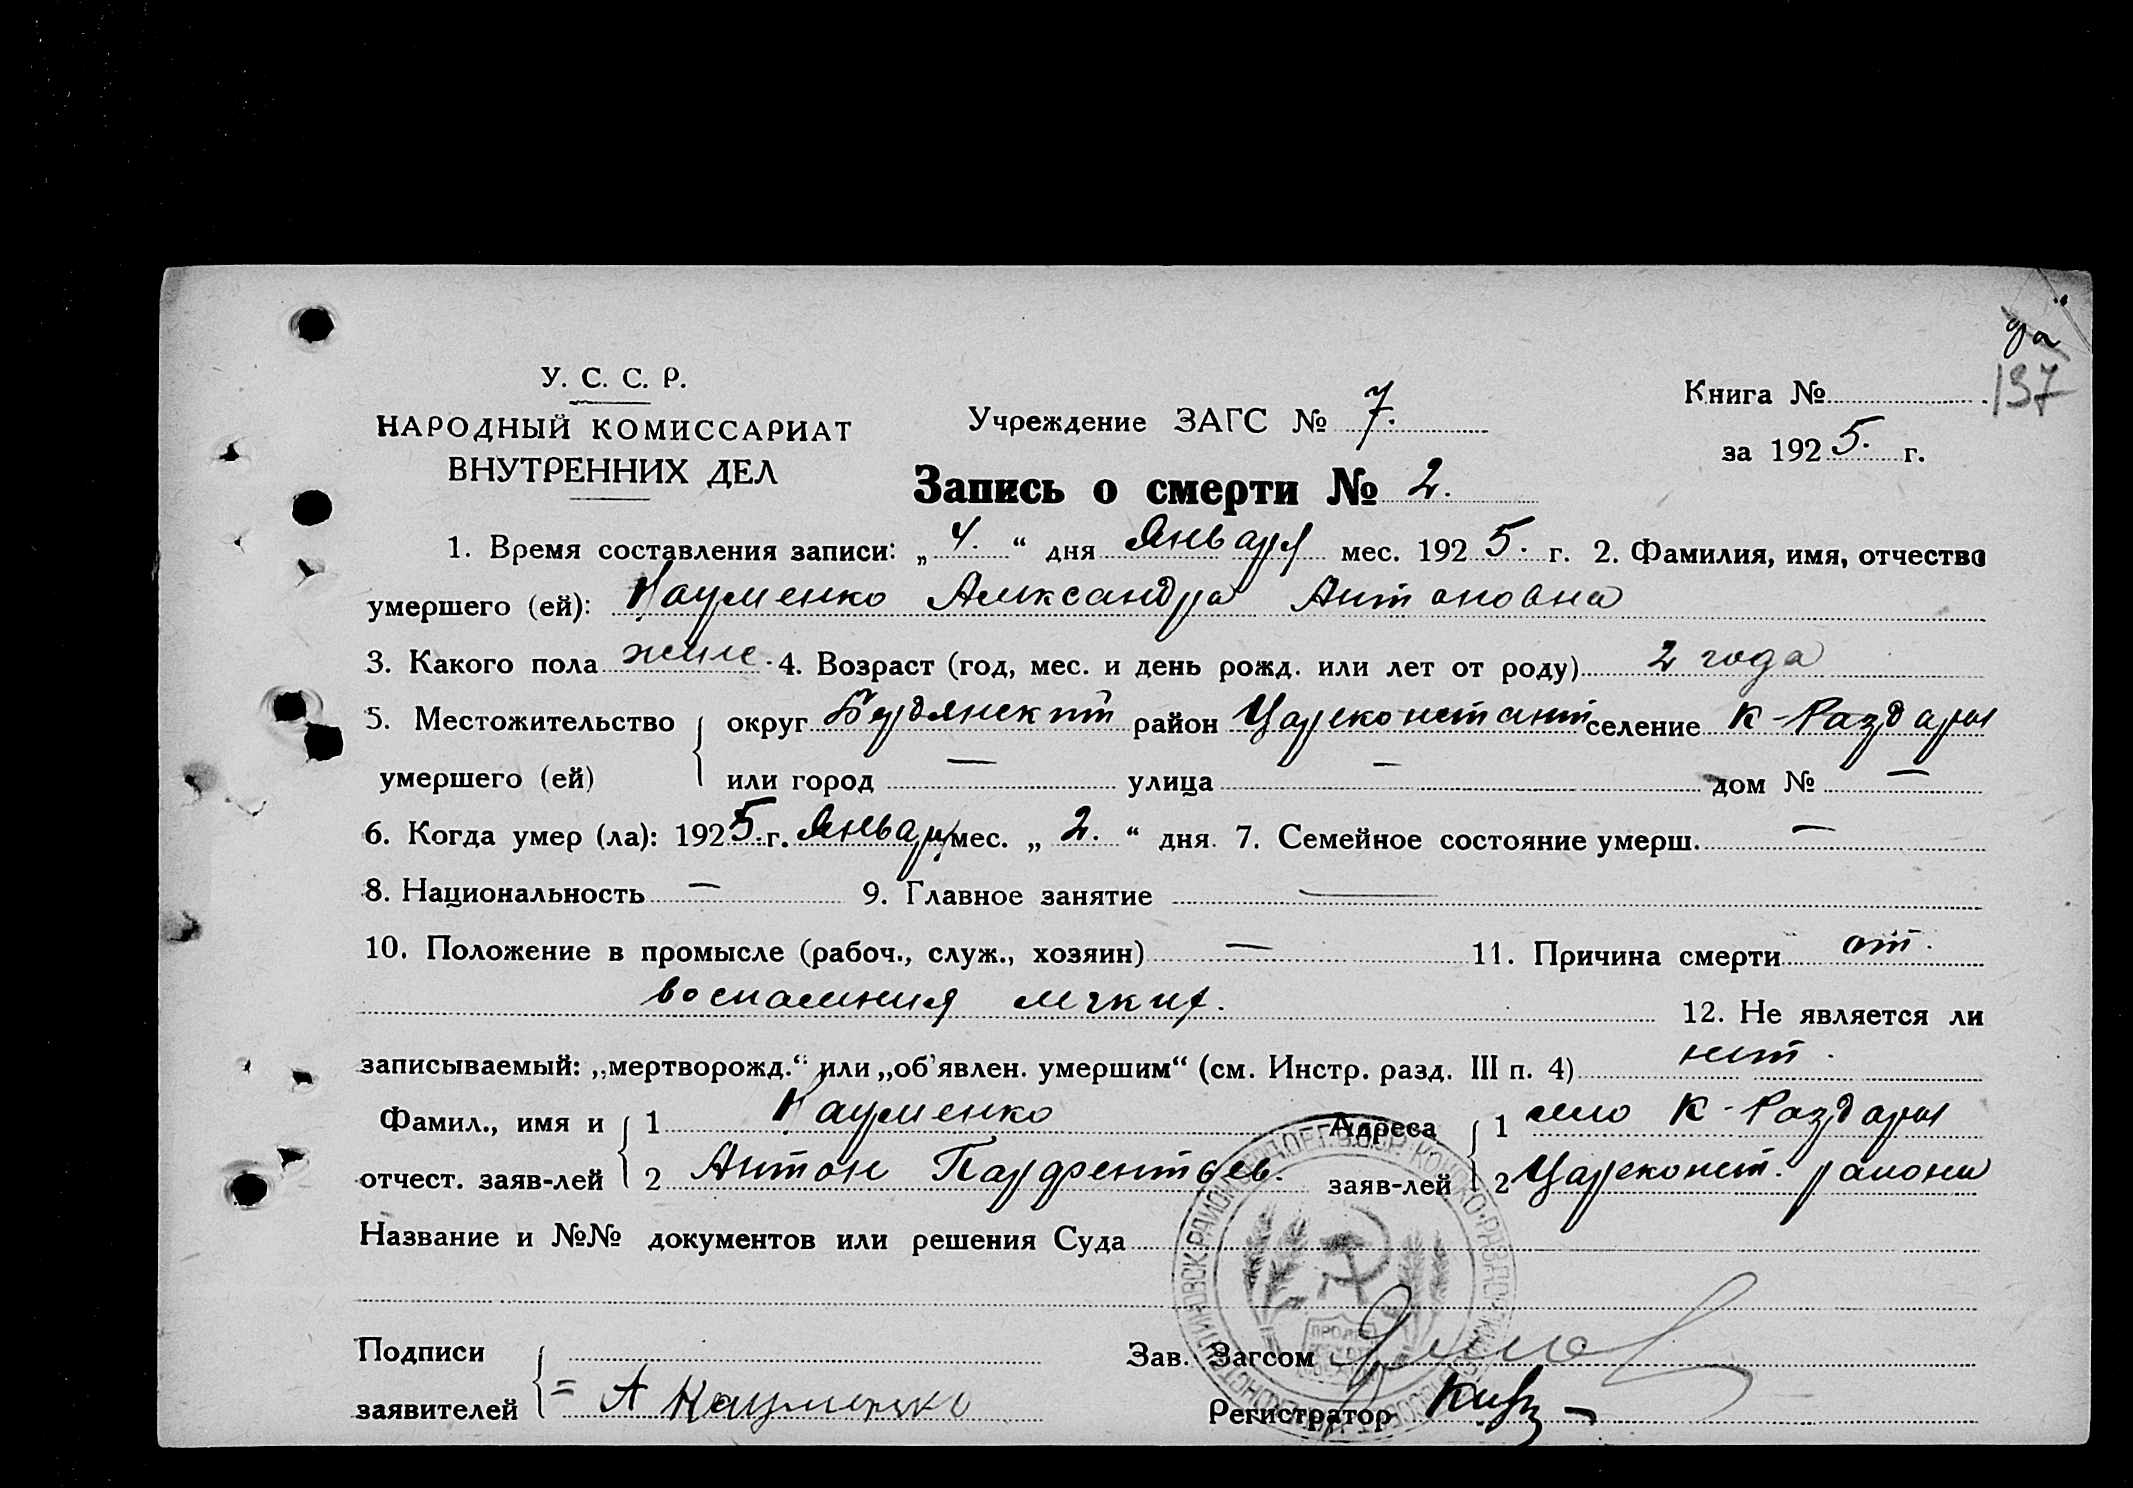 да
У. С. С. Р.
НАРОДНЫЙ КОМИССАРИАТ
ВНУТРЕННИХ ДЕЛ
Учреждение ЗАГС № 7.
Книга № 137
за 1925. г.
Запись о смерти № 2.
1. Время составления записи: „ 4. “ дня Января мес. 1925. г. 2. Фамилия, имя, отчество
умершего (ей): Науменко Александра Антоновна
3. Какого пола женс. 4. Возраст (год, мес. и день рожд. или лет от роду) 2 года
5. Местожительство { округ Бердянский район Цареконстант селение К-Раздоры
умершего (ей) или город — улица — дом № —
6. Когда умер (ла): 1925. г. Января мес. „ 2. “ дня. 7. Семейное состояние умерш. —
8. Национальность — 9. Главное занятие —
10. Положение в промысле (рабоч., служ., хозяин) — 11. Причина смерти от
воспаления легких. 12. Не является ли
записываемый: „мертворожд.“ или „об'явлен. умершим“ (см. Инстр. разд. III п. 4) нет.
Фамил., имя и { 1 Науменко Адреса { 1 село К-Раздоры
отчест. заяв-лей 2 Антон Парфентьев. заяв-лей 2 Цареконст. района
Название и №№ документов или решения Суда
Подписи Зав. Загсом
заявителей { = А Науменко Регистратор